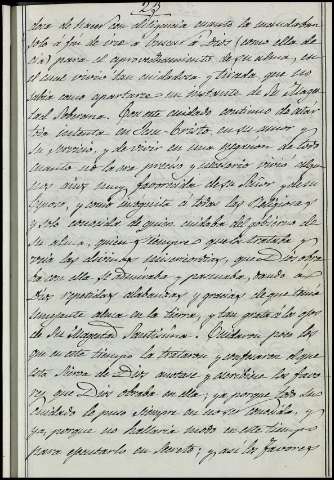 25
dora de hacer con diligencia cuanto la mandaban
solo á fin de irse a buscar á Dios (como ella de
cia) para el aprovechamiento de su alma, en
el cual vivia tan cuidadosa y fixada, que no
sabia como apartarse un instante de la Mages
tad Soberana. Con este cuidado continuo de estár
toda metida en Jesu-Cristo, en su amor y
su servicio, y de vivir en una negacion de todo
cuanto no la era preciso y necesario vivio algu
nos años muy favorecida de su Señor y de su
Esposo, y como incognita á todas las Religiosas
y solo conocida de quien cuidaba del gobierno de
su alma, quien siempre que la trataba y
veia las divinas misericordias, que Dios obra
ba con ella se admiraba y pasmaba, dando á
Dios repetidas alabanzas y gracias de que tenia
semejante alma en la tierra, y tan grata á los ojos
de Su Magestad Santisima. Cuidaron poco los
que en este tiempo la trataron y confesaron el que
esta Sierva de Dios anotase y escribiese los favo
res que Dios obraba en ella; ya porque todo su
cuidado lo puso siempre en no ser conocida, y
ya, porque no hallaria modo en este tiempo
para ejecutarlo en secreto; y asi los favores